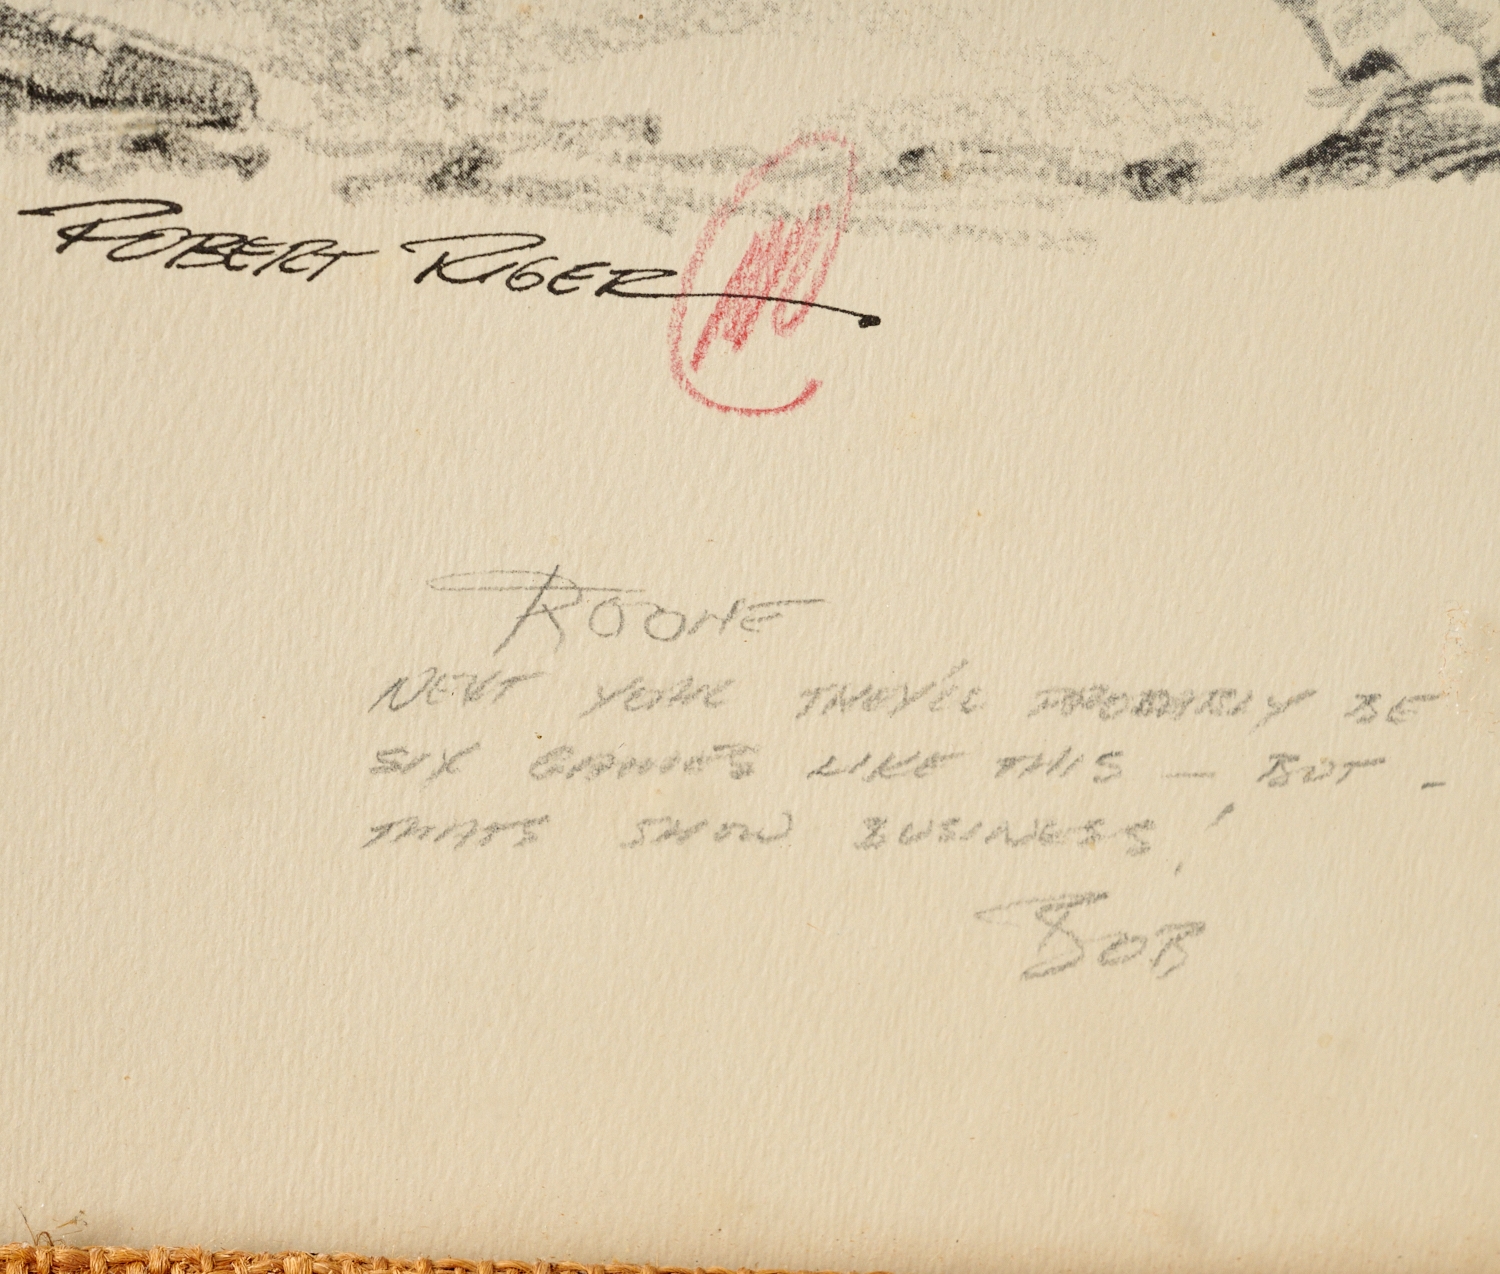 ROBERT RIGER
ROONE
NEXT YEAR THEY'LL PROBABLY BE
SIX GAMES LIKE THIS — BUT -
THATS SHOW BUSINESS!
BOB